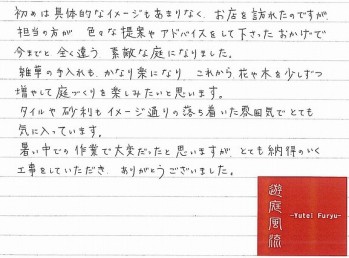 初めは具体的なイメージもあまりなく、お店を訪れたのですが、
担当の方が 色々な提案やアドバイスをして下さったおかげで
今までと全く違う、素敵な庭になりました。
雑草の手入れも、かなり楽になり、これから、花や木を少しずつ
増やして庭づくりを楽しみたいと思います。
タイルや砂利もイメージ通りの落ち着いた雰囲気でとても
気に入っています。
暑い中での作業で大変だったと思いますが、とても納得のいく
工事をしていただき、ありがとうございました。
遊庭風流
-Yutei Furyu-